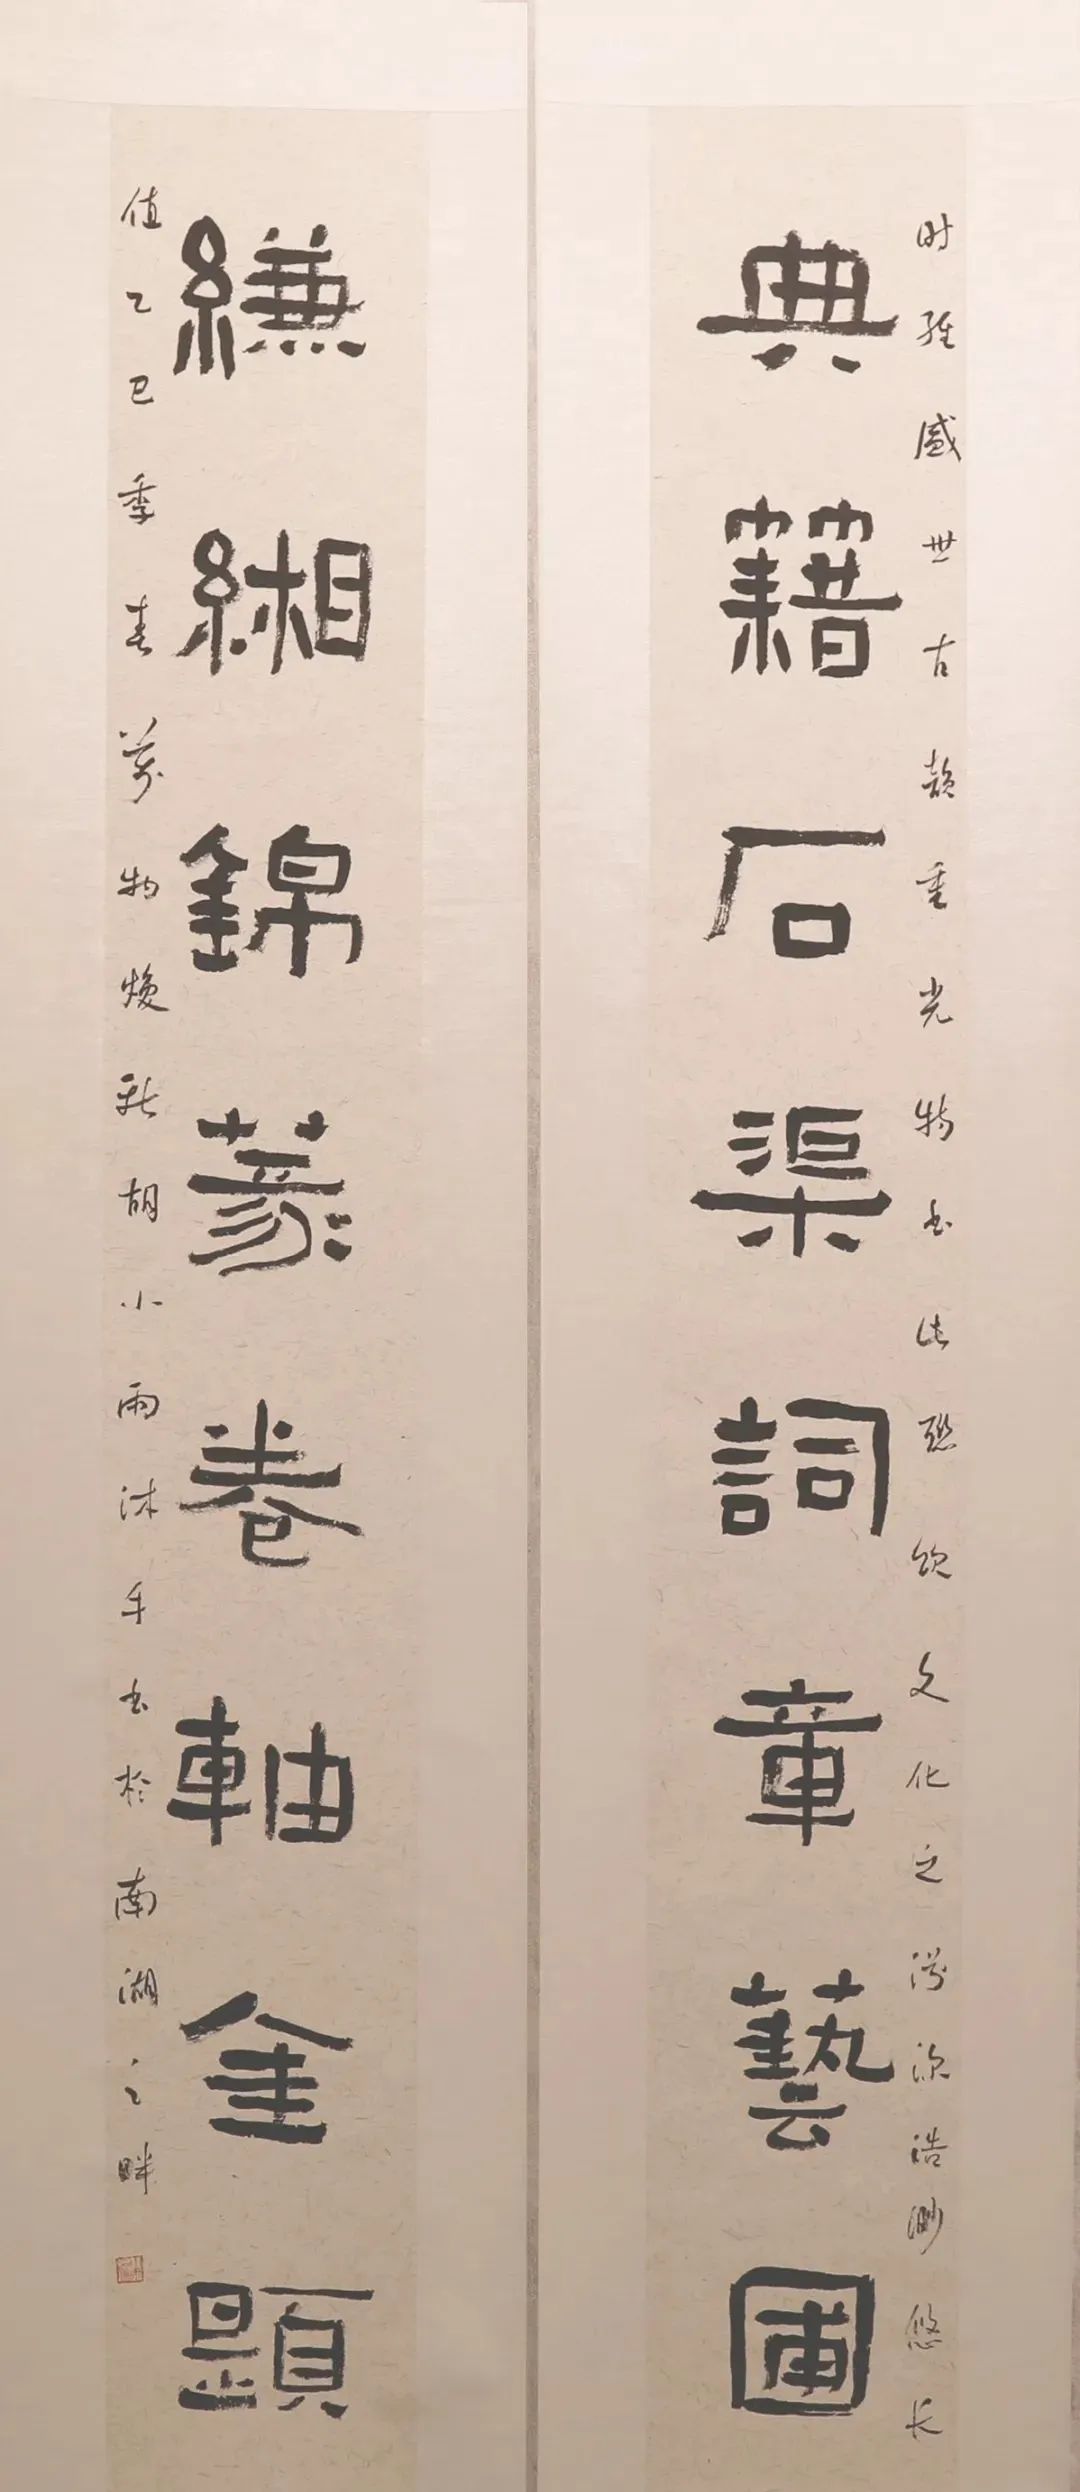 时维盛世古韵重光特书此联颂文化之渊源浩渺悠长
典籍石渠詞章藝圃
縑緗錦篆卷軸金題
值乙巳季春萬物焕新胡小雨沐手书於南湖之畔